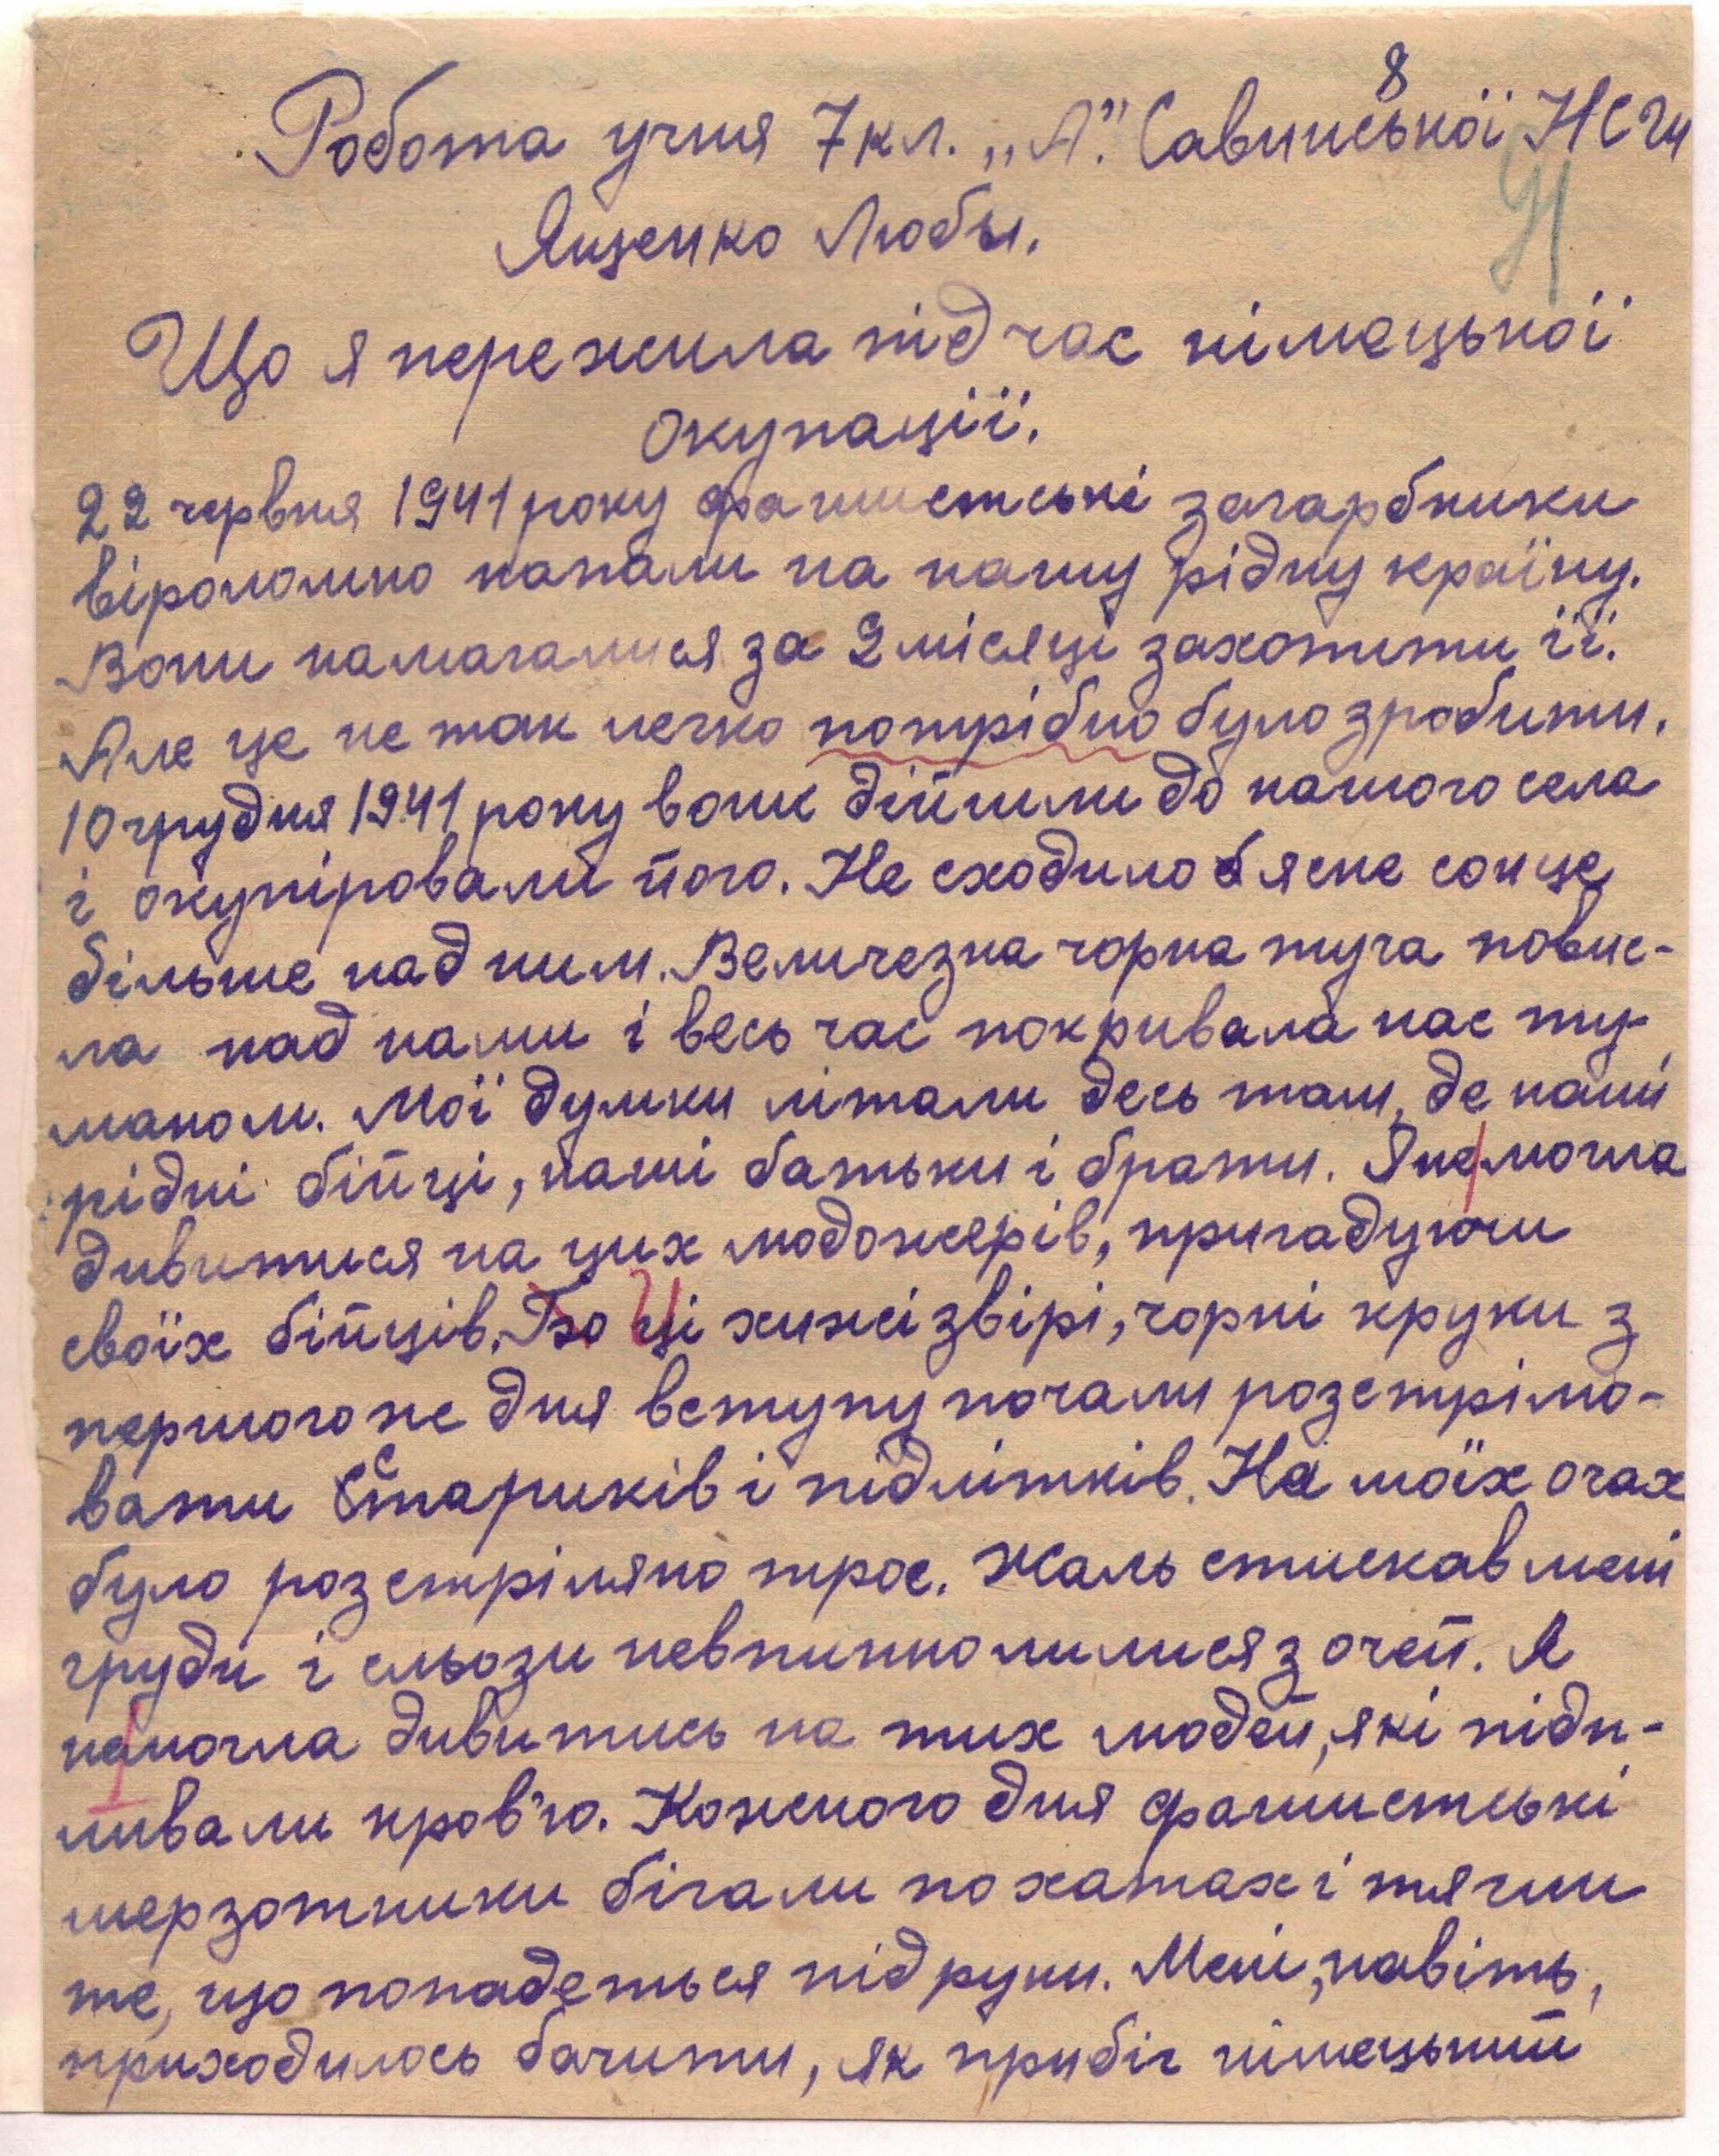 8
Робота учня 7 кл. „А". Савинської НСШ
Ященко Люби.
Що я пережила під час німецької
окупації.
22 червня 1941 року фашистські загарбники
віроломно напали на нашу рідну країну.
Вони намагалися за 2 місяці захопити її.
Але це не так легко потрібно було зробити.
10 грудня 1941 року вони дійшли до нашого села
і окупіровали його. Не сходило ясне сонце
більше над ним. Величезна чорна туча повис-
ла над нами і весь час покривала нас ту-
маном. Мої думки літали десь там, де наші
рідні бійці, наші батьки і брати. Я не могла
дивитися на цих людожерів, пригадуючи
своїх бійців. Бо Ці хижі звірі, чорні круки з
першого же дня вступу почали розстрілю-
вати стариків і підлітків. На моїх очах
було розстріляно трое. Жаль стискав мені
груди і сльози невпинно лилися з очей. Я
не могла дивитись на тих людей, які підп-
ливали кров'ю. Кожного дня фашистські
мерзотники бігали по хатах і тягли
те, що попадеться під руки. Мені, навіть,
приходилось бачити, як прибіг німецький